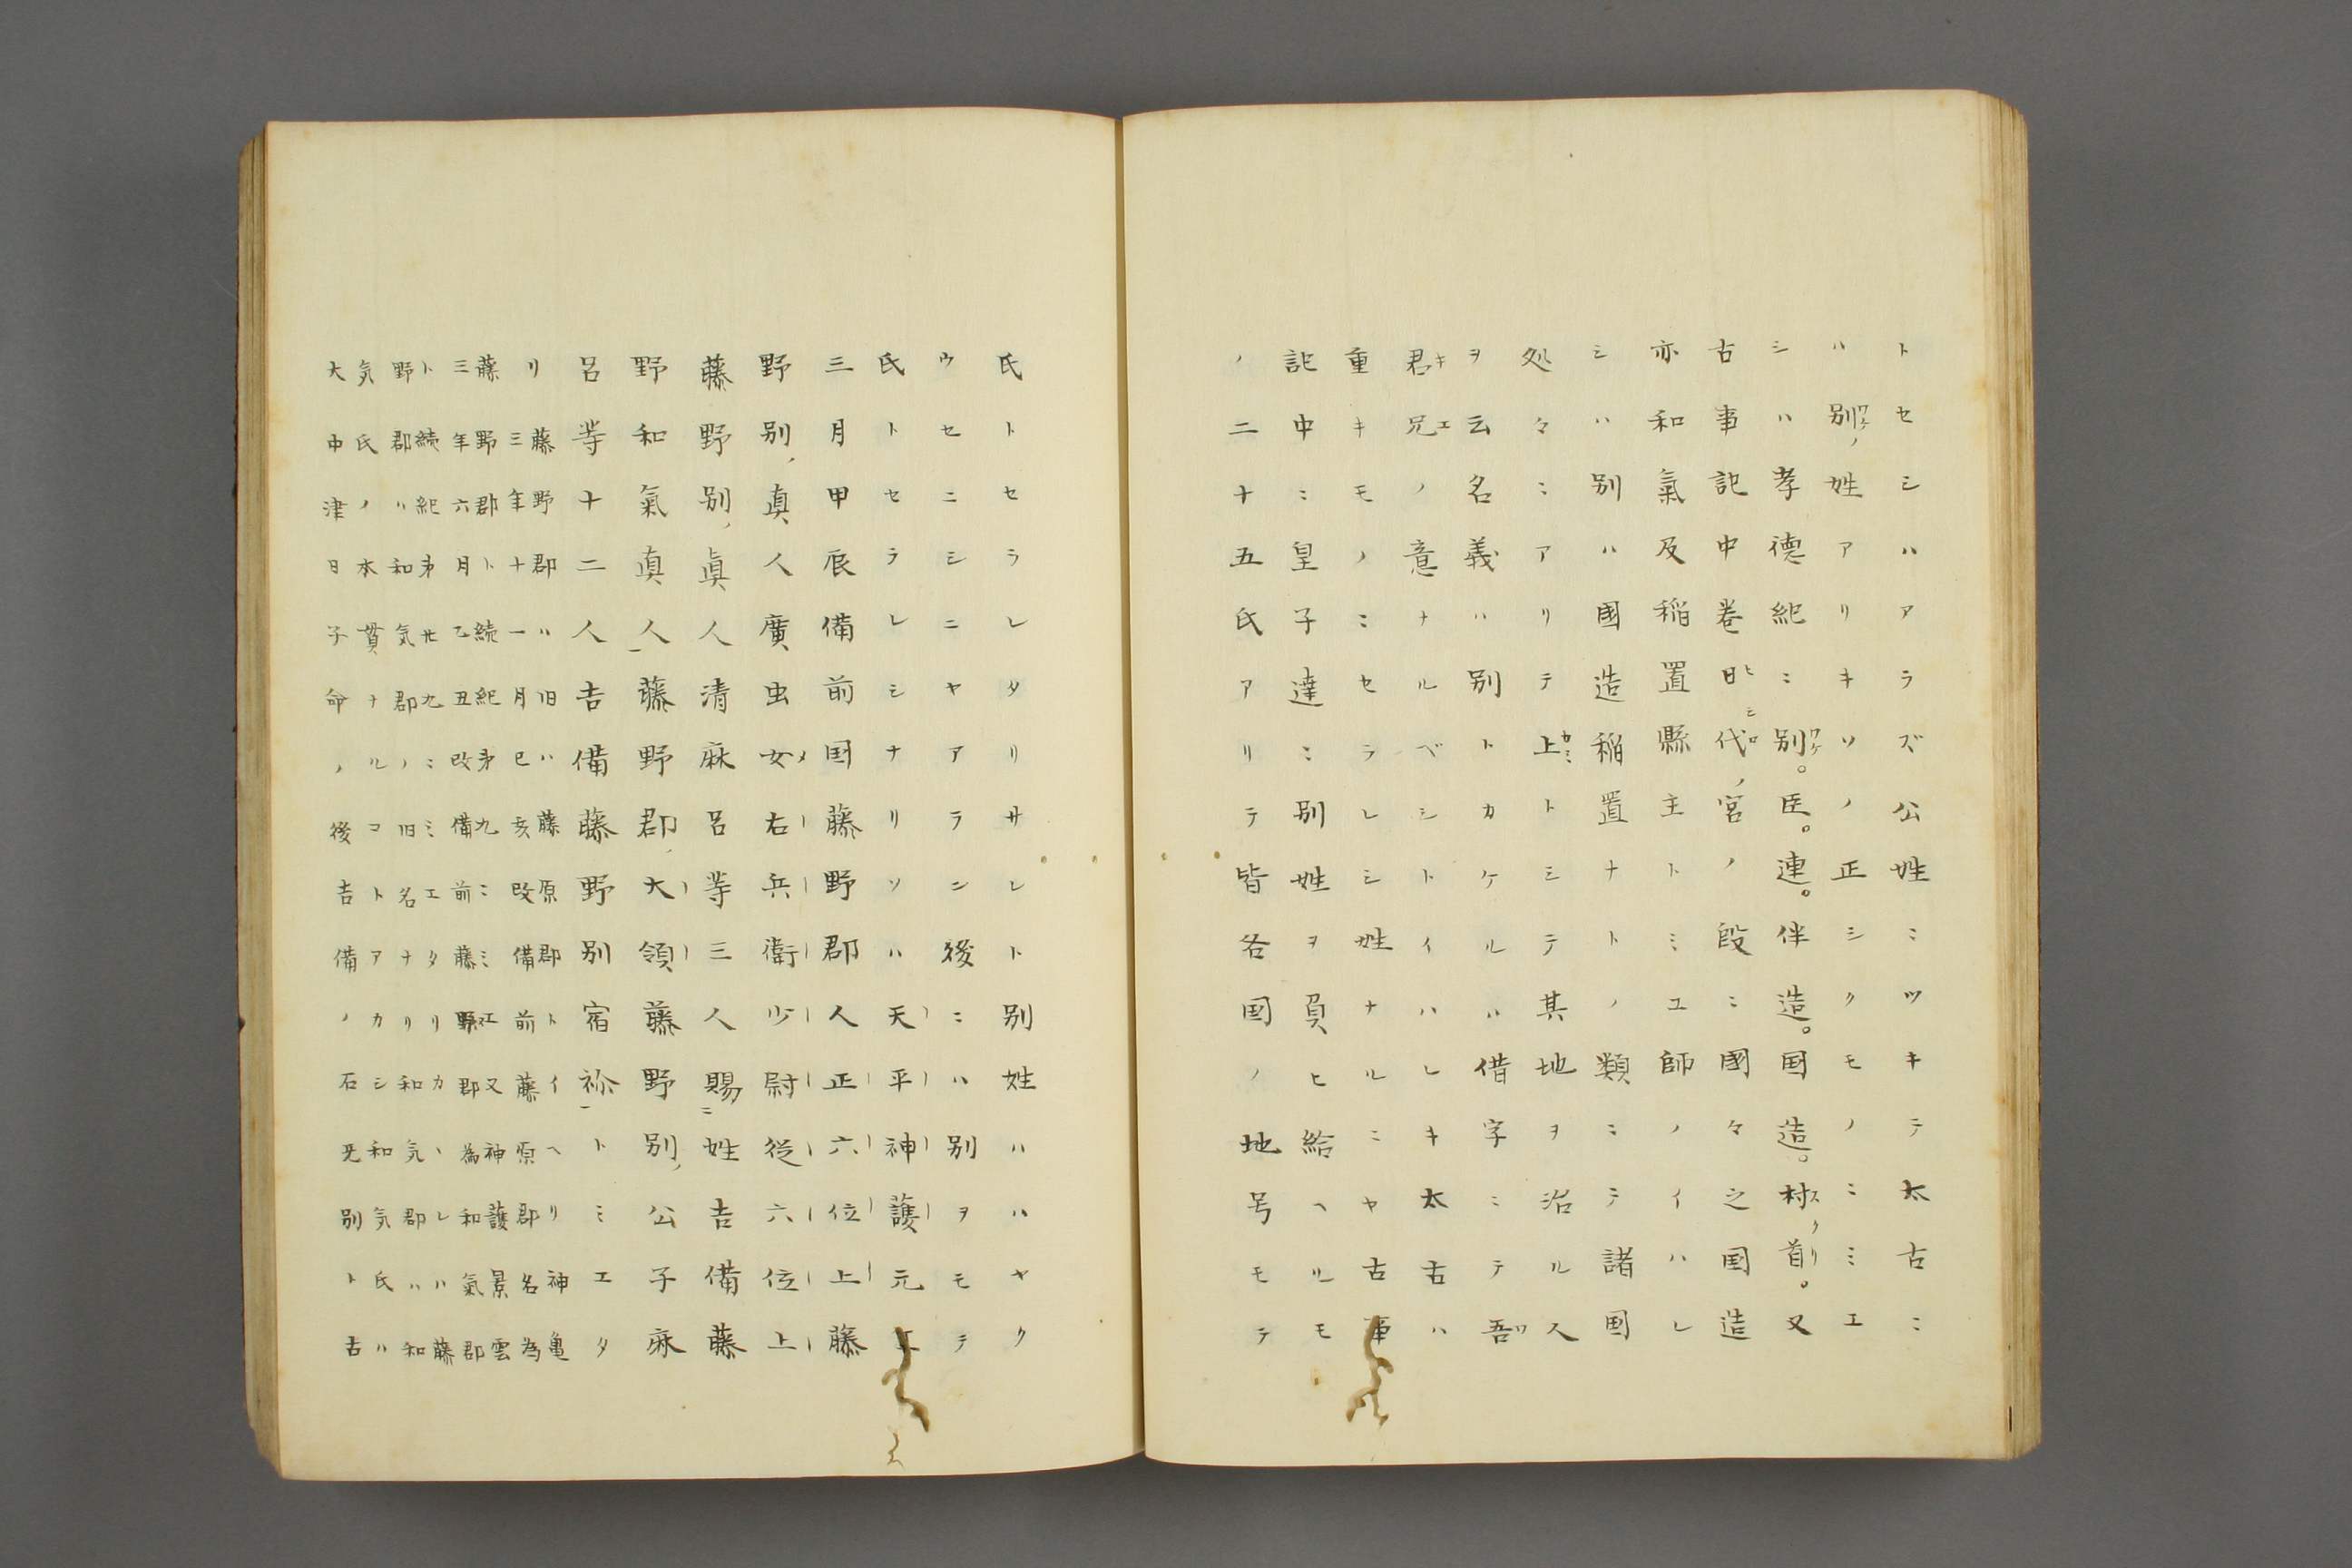 トセシハアラズ公姓ニツキテ太古ニ
ハ別ワケノ姓アリキソノ正シクモノニミエ
シハ孝德紀ニ別ワケ。臣。連。伴造。国造。村首スクリ。又
古事記中巻日ヒ代シロノ宮ノ段ニ國々之国造
亦和氣及稲置縣主トミユ師ノイハレ
シハ別ハ國造稲置ナトノ類ニテ諸国
処々ニアリテ上カミトシテ其地ヲ治ル人
ヲ云名義ハ別トカケルハ借字ニテ吾ワ
君キ兄エノ意ナルベシトイハレキ太古ハ
重キモノニセラレシ姓ナルニヤ古事
記中ニ皇子達ニ別姓ヲ負ヒ給ヘルモ
ノ二十五氏アリテ皆各国ノ地号モテ
氏トセラレタリサレト別姓ハハヤク
ウセニシニヤアラン後ニハ別ヲモテ
氏トセラレシナリソハ天平神護元
三月甲辰備前国藤野郡人正六位上藤
野別ノ真人廣虫女メ右兵衛少尉従六位上
藤野別ノ眞人清麻呂等三人賜ニ姓吉備藤
野和氣真人一藤野郡ノ大領藤野別ノ公子麻
呂等十二人吉備藤野別宿祢一トミエタ
リ藤野郡ハ旧ハ藤原郡トイヘリ神亀
三年十一月己亥改備前藤原郡名為
藤野郡ト続紀第九ニミ江又神護景雲
三年六月乙丑改備前藤野郡為和氣郡
ト続紀第廿九ニミエタリカヽレハ藤
野郡ハ和気郡ノ旧名ナリ和気郡ハ和
気氏ノ本貫ナルコトアカシ和気氏ハ
大中津日子命ノ後吉備ノ石旡別ト古